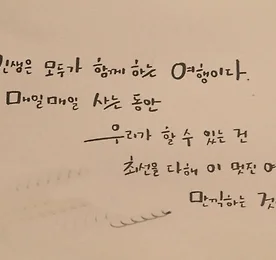 인생은 모두가 함께 하는 여행이다.
매일매일 사는 동안
우리가 할 수 있는 건
최선을 다해 이 멋진 여
만끽하는 것